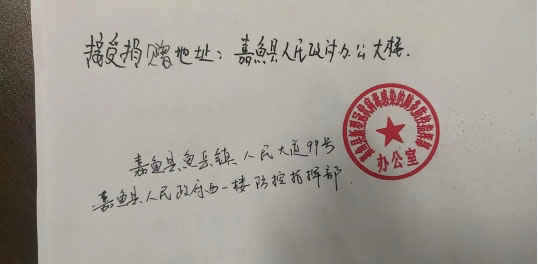 接受捐赠地址：嘉鱼县人民政府办公大楼.
嘉鱼县鱼岳镇人民大道99号
嘉鱼县人民政府西一楼防控指挥部.
办公室